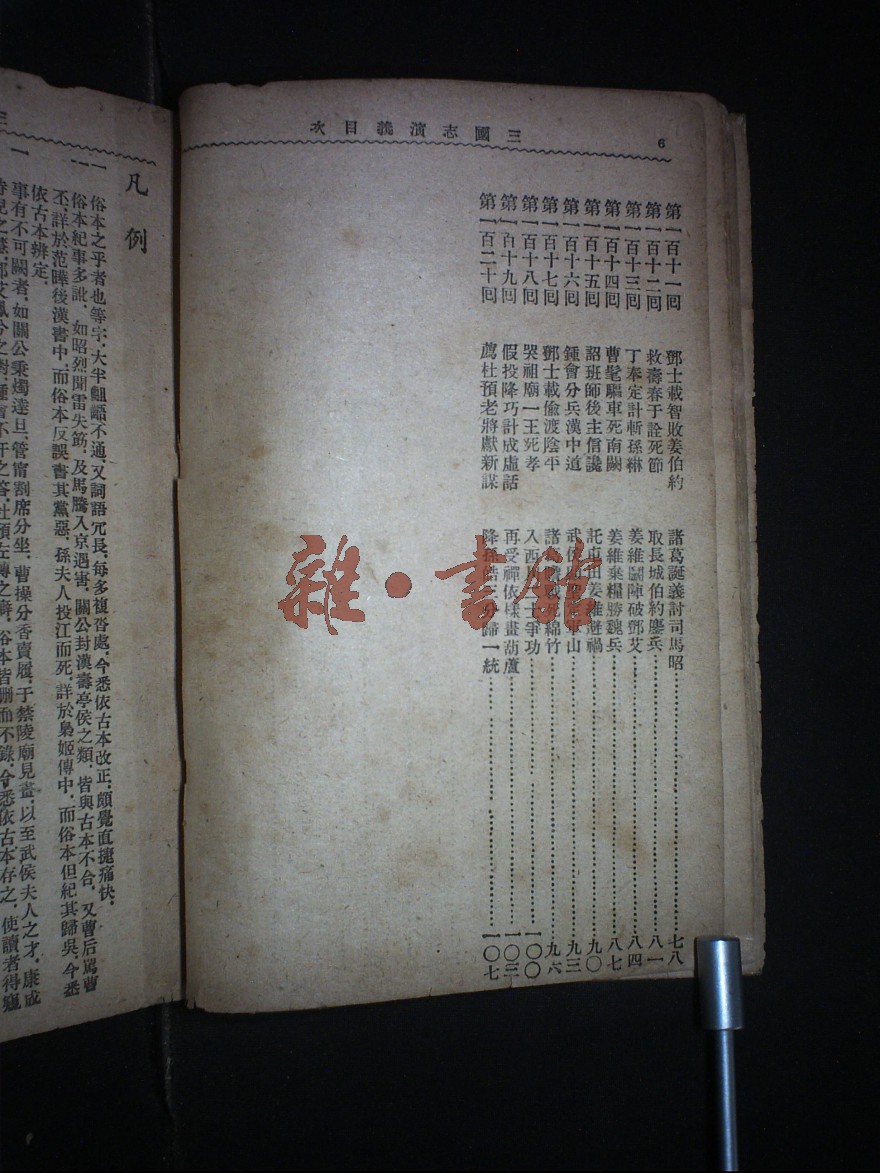 三國志演義目次
6
第一百十一回 鄧士載智敗姜伯約 諸葛誕義討司馬昭 七八
第一百十二回 救壽春于詮死節 取長城伯約鏖兵 八一
第一百十三回 丁奉定計斬孫綝 姜維鬭陣破鄧艾 八四
第一百十四回 曹髦驅車死南闕 姜維棄糧勝魏兵 八七
第一百十五回 詔班師後主信讒 託屯田姜維避禍 九〇
第一百十六回 鍾會分兵漢中道 武侯 山 九三
第一百十七回 鄧士載偷渡陰平 諸 戰死綿竹 九六
第一百十八回 哭祖廟一王死孝 入西川二士爭功 一〇〇
第一百十九回 假投降巧計成虛話 再受禪依樣畫葫蘆 一〇三
第一百二十回 薦杜預老將獻新謀 降孫皓三分歸一統 一〇七
雜·書館
凡例
一 俗本之乎者也等字,大半齟齬不通,又詞語冗長,每多複沓處,今悉依古本改正,頗覺直捷痛快.
一 俗本紀事多訛,如昭烈聞雷失筯,及馬騰入京遇害,關公封漢壽亭侯之類,皆與古本不合,又曹后罵曹
丕,詳於范曄後漢書中,而俗本反誤書其黨惡,孫夫人投江而死,詳於梟姬傳中,而俗本但紀其歸吳,今悉
依古本辨定.
一 事有不可闕者,如關公秉燭達旦,管甯割席分坐,曹操分香賣履,于禁陵廟見畫,以至武侯夫人之才,康成
俗本皆刪而不錄,今悉依古本存之,使讀者得窺